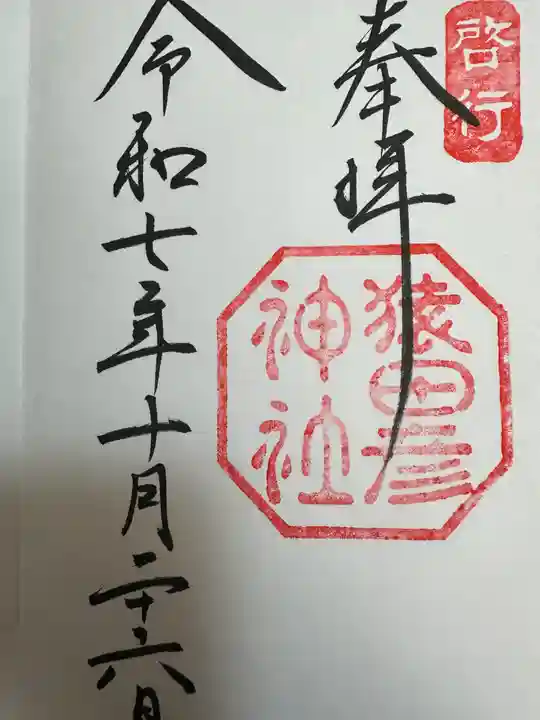 啓行
奉拝
猿田彦
神社
令和七年十月二十六日